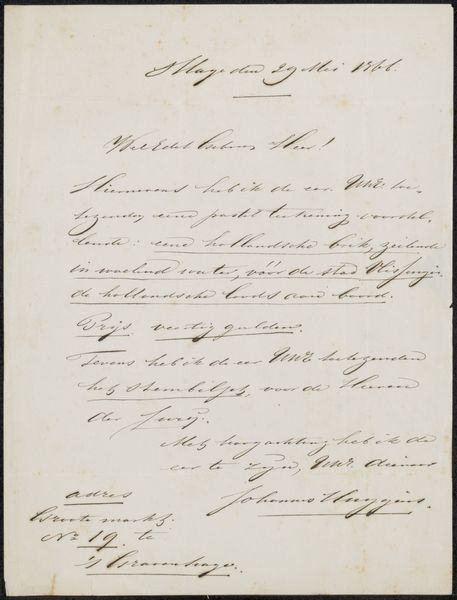 s'Hage den 29 Mei 1866.
Wel Edel Geboren Heer!
Hiernevens heb ik de eer UwE toe-
tezenden eene pastel teekening voorstel-
lende: eene hollandsche brik, zeilende
in woelend water, vóór de stad Vlissingen
de hollandsche loods aan boord.
Prijs veertig gulden.
Tevens heb ik de eer UwE toetezenden
het stembiljet, voor de Heeren
der Jury.
Met hoogachting heb ik de
eer te zijn, UwE. dienaar
Johannes Huygens.
adres
Groote markt.
No 19. te
's Gravenhage.